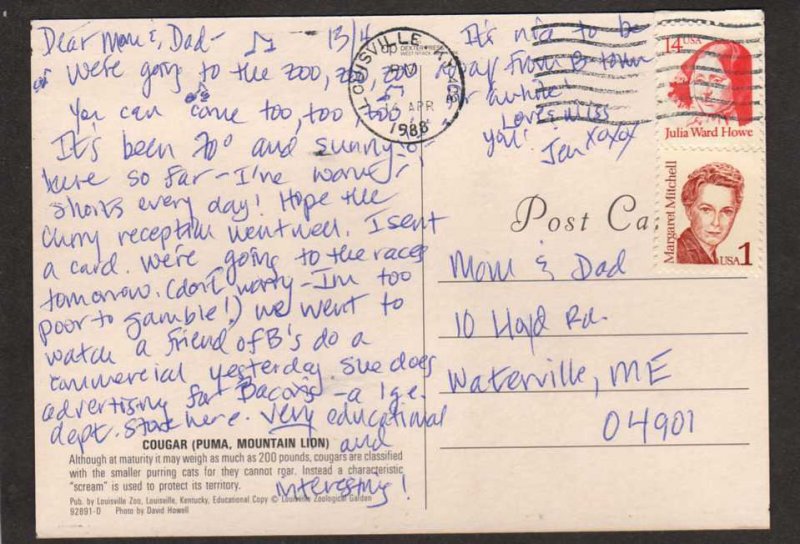 Dear Mom &, Dad- 13/4
We're going to the zoo, zoo, zoo
You can come too, too, too
It's been 70° and sunny
here so far - I've worn
shorts every day! Hope the
Curry reception went well. I sent
a card. We're going to the races
tomorrow. (don't worry - I'm too
poor to gamble!) We went to
watch a friend of B's do a
commercial yesterday. She does
advertising for Bacon's - a lge.
dept. store here. Very educational
and
interesting!
It's nice to be
away from B town
for awhile!
Love & miss
you!
Jen xoxox
LOUISVILLE KY
PM
APR
1988
14
Julia Ward Howe
Margaret Mitchell
USA 1
Post Ca
Mom & Dad
10 Rd.
Waterville, ME
04901
COUGAR (PUMA, MOUNTAIN LION)
Although at maturity it may weigh as much as 200 pounds, cougars are classified
with the smaller purring cats for they cannot roar. Instead a characteristic
"scream" is used to protect its territory.
Pub. by Louisville Zoo, Louisville, Kentucky, Educational Copy © Louisville Zoological Garden
92891-D Photo by David Howell